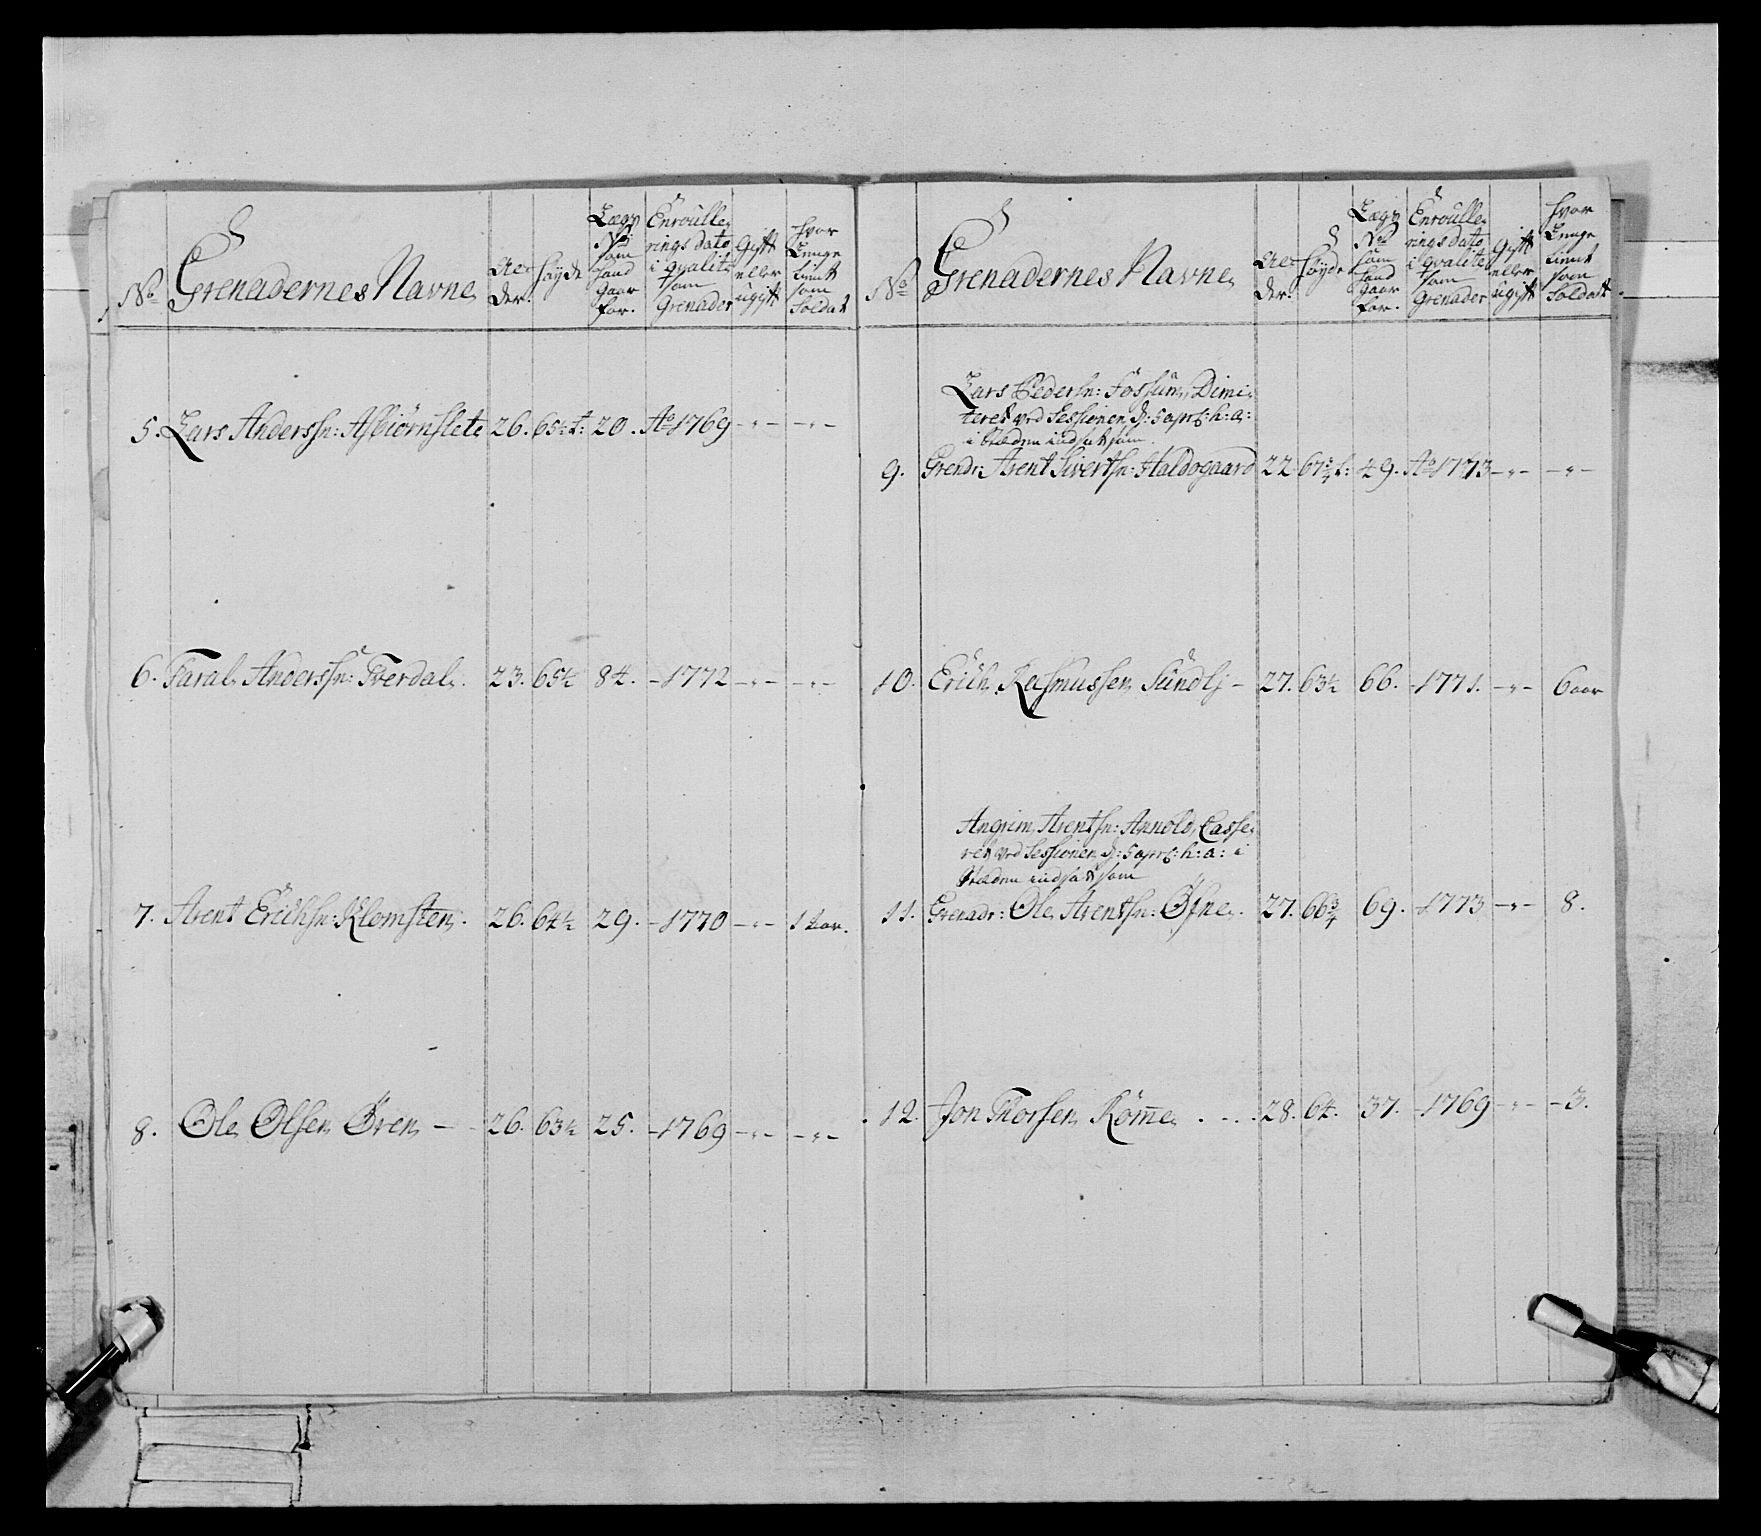 No Grenadernes Navne Al- der. Høyde Lægs No som hand gaar for. Enroullerings dato i qvalite som Grenader Gift eller ugift hvor Lenge tient som Soldat
5. Lars Anderssn: Asbiørnslete 26. 65½ t: 20. Ao 1769 -"- -"-
6. Taral Anderssn: Tverdal. 23. 65½ 84. - 1772 -"- -"-
7. Arent Erichsn: Klomsten. 26. 64½ 29. - 1770 -"- 1 aar.
8. Ole Olsen Ören - 26. 63½ 25. - 1769 -"- -"-
No Grenadernes Navne Al- der. Høyde Lægs No som hand gaar for. Enroullerings dato i qvalite som Grenader Gift eller ugift hvor Lenge tient som Soldat
Lars Pedersn: Fossum, Dimi-
teret ved Sessionen d: 5 apr: h: a:
i Stæden indsat som
9. Grendr: Arent Sivertsn: Haldogaard 22. 67¾ t: 49. Ao 1773 -"- -"-
10. Erich Rasmussen Sundli - 27. 63½ 66. - 1771. -"- 6 aar
Angrim Arentsn: Arnold, Casse-
ret ved Sessionen d: 5 apr: h: a: i
Stæden indsat som
11. Grenadr: Ole Arentsn: Öfne. 27. 66¾ 69. - 1773 -"- 8.
12. Jon Thorsen Röm̅e . . . 28. 64. 37. - 1769 -"- - 3.